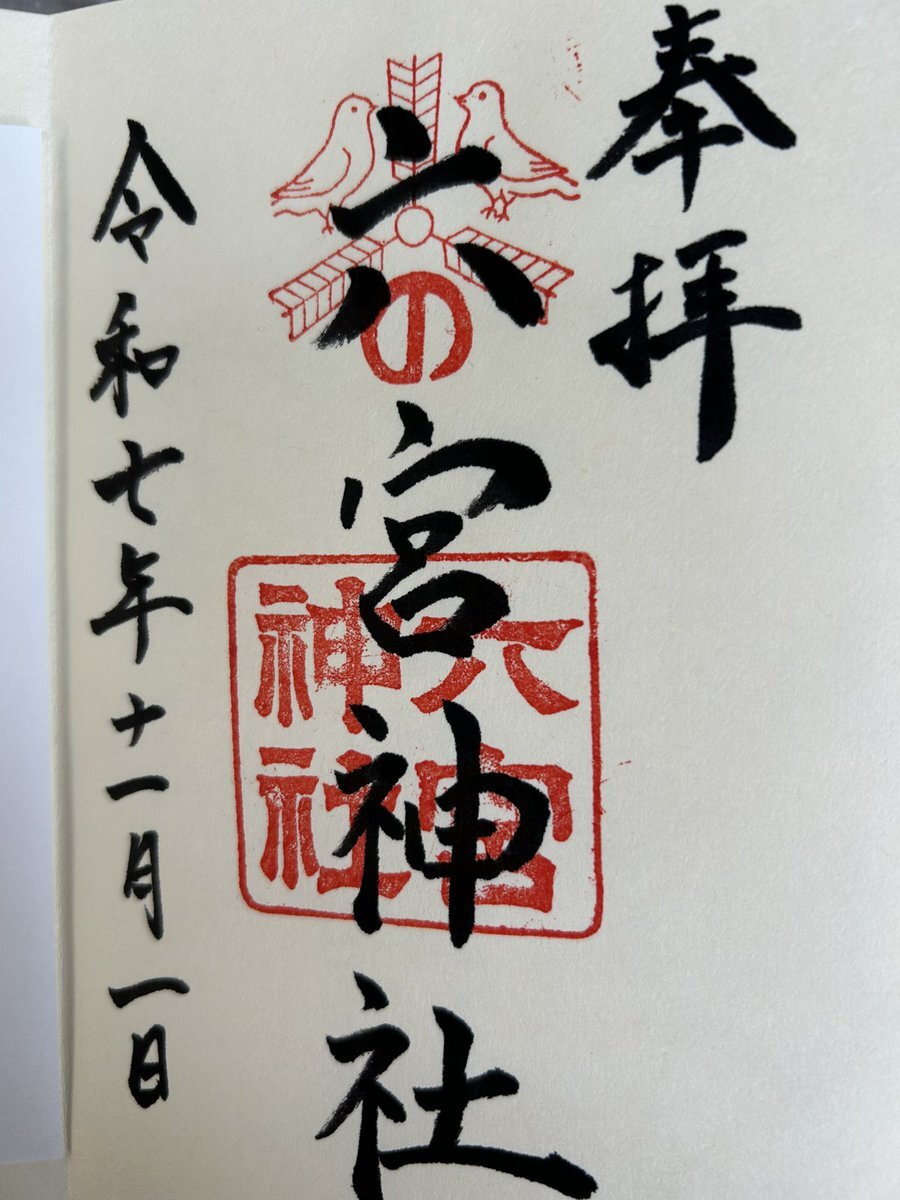 奉拝
六宮神社
の
六宮
神社
令和七年十一月一日